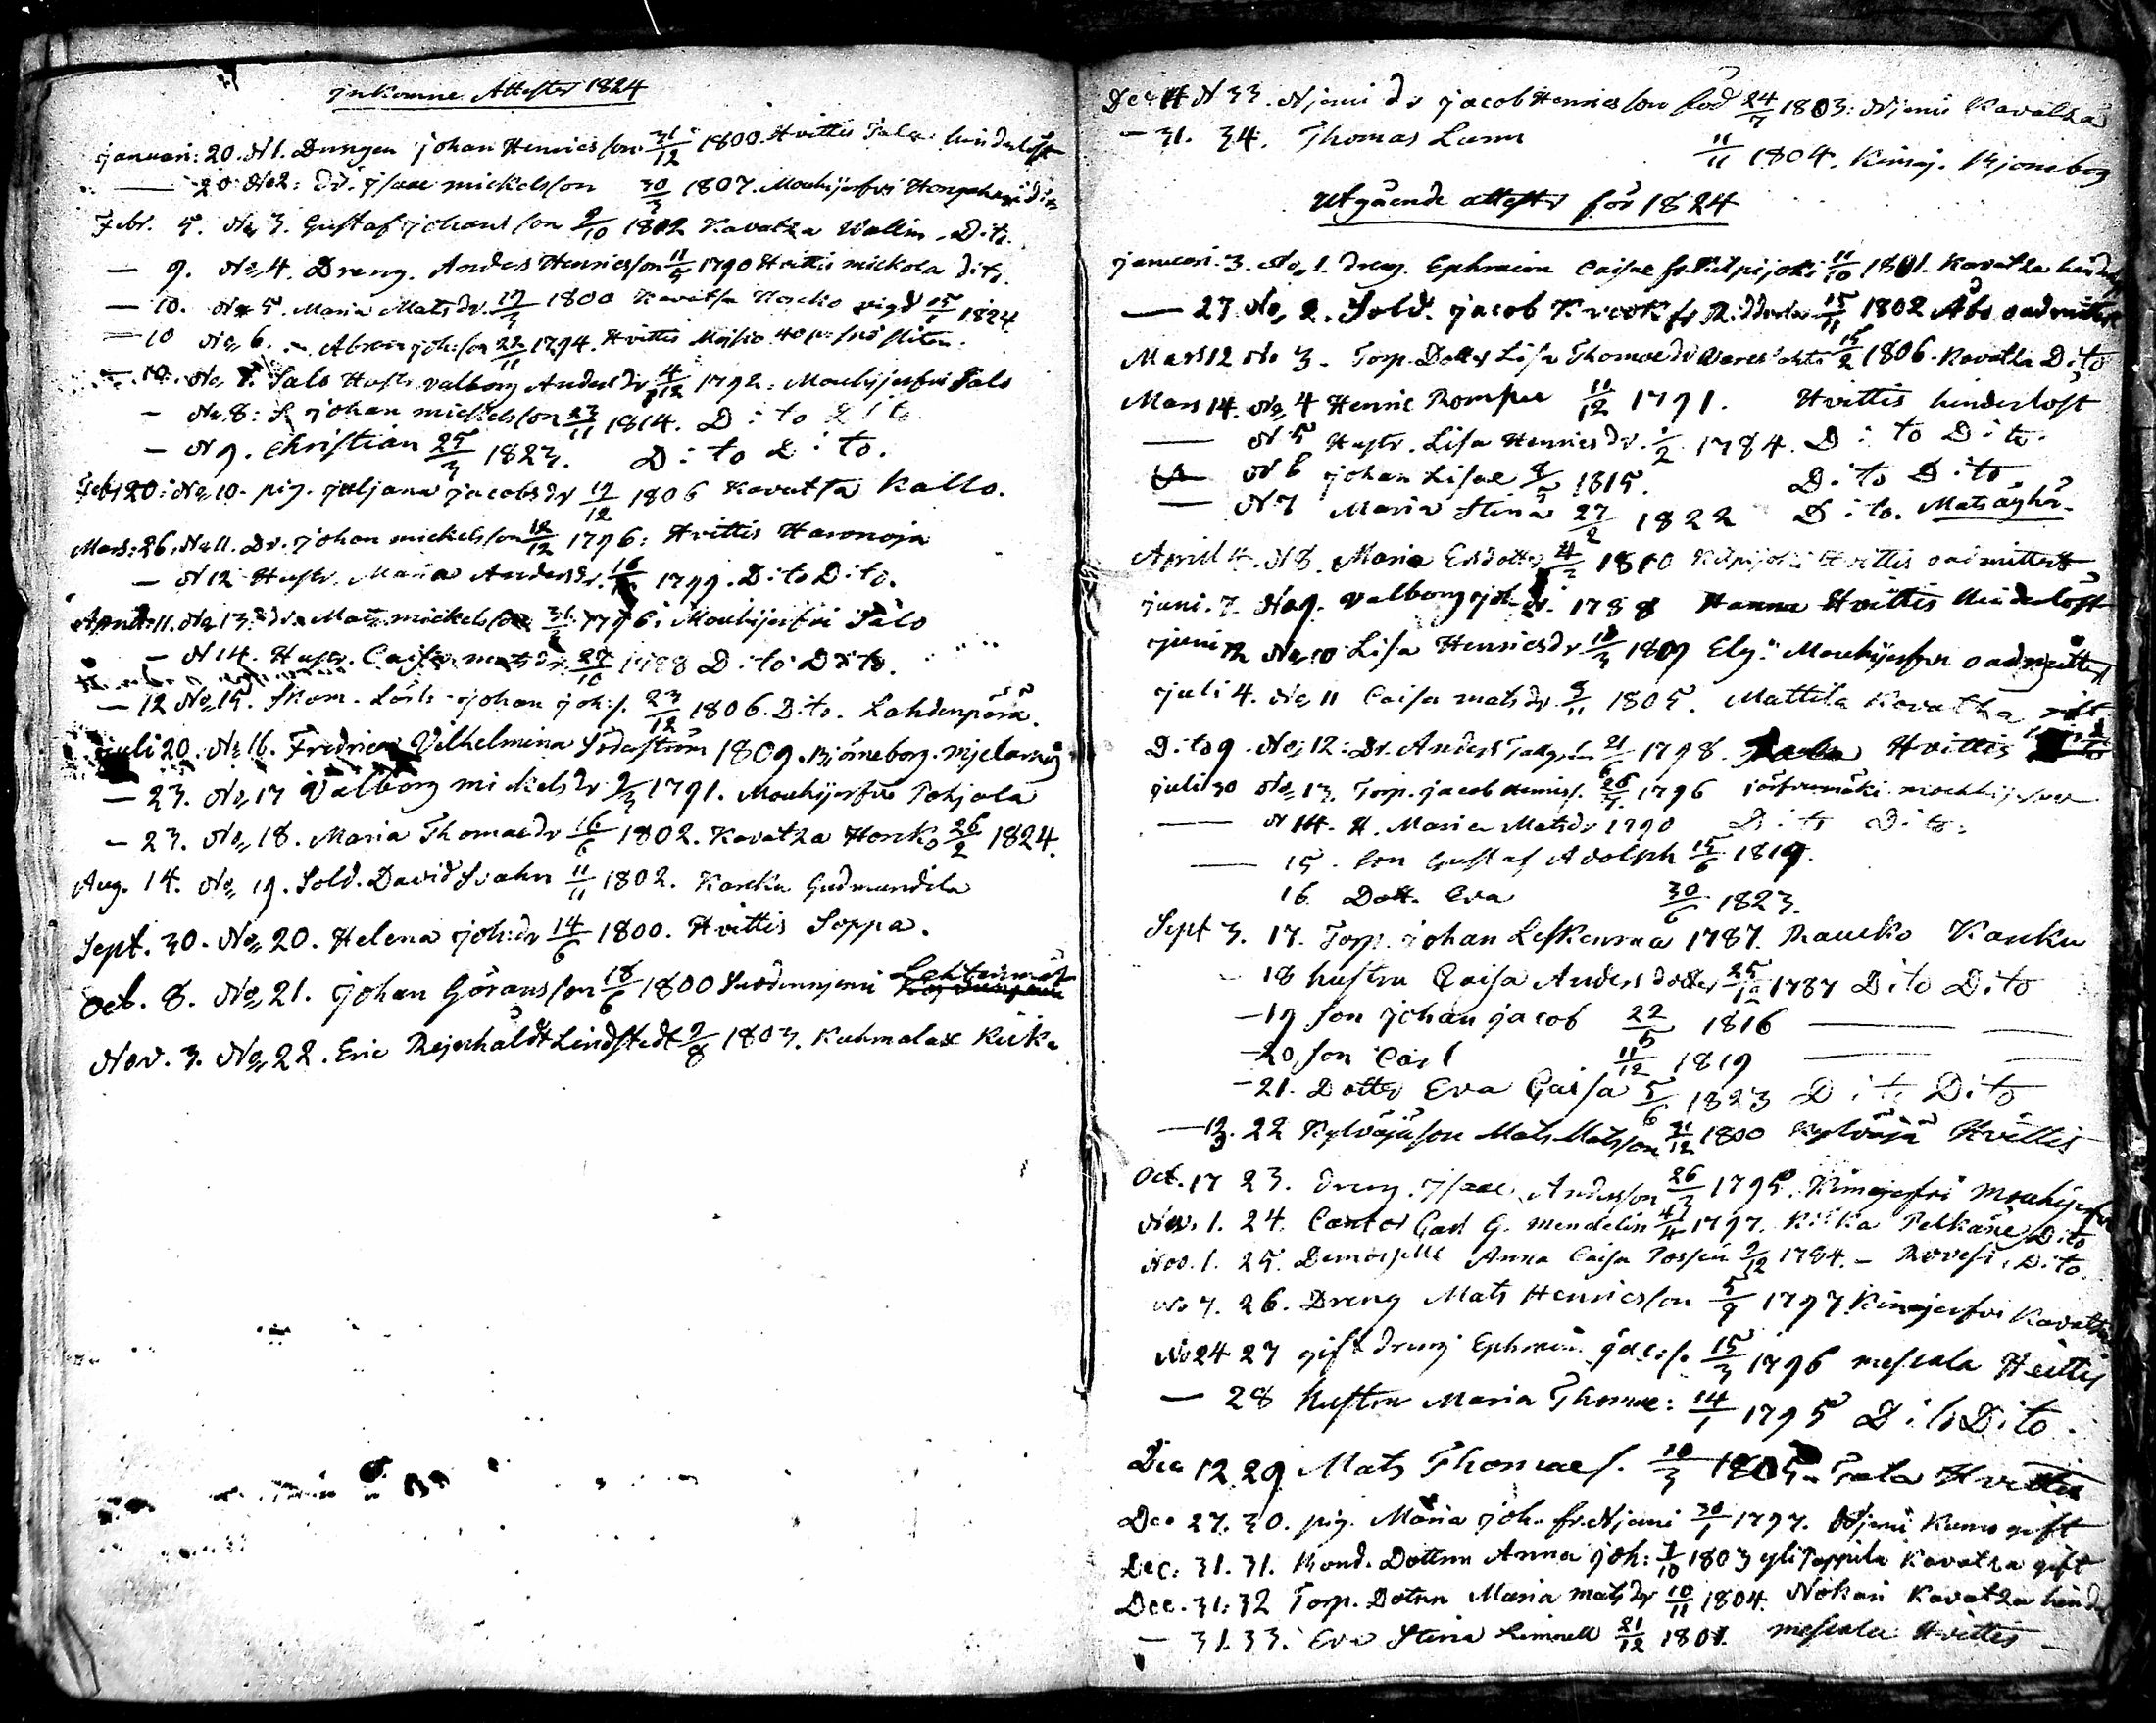 Inkomne Attester 1824
Januari: 20. N 1. Drengen Johan Henricsson 31/12 1800. Hvittis Tala hinderlöst
— 20 No 2: Dr. Isaac Mickelsson 30/3 1807. Mouhijerfvi Dito
Febr. 5. No 3. Gustaf Johansson 9/10 1802 Kavatza Wallin. Dito.
— 9. No 4. Dreng. Anders Henricsson 11/5 1790 Hvittis Mickola Dito.
— 10. No 5. Maria Matsdr. 17/3 1800 Kavitsa vigd 1824
— 10 No 6. Abram Joh:son 22/11 1794. Hvittis
— 10. No 7. Salo Hustr. Valborg Andersdr 4/12 1792: Mouhijerfvi Salo
— No 8: Johan Mickelsson 23/11 1814. Dito Dito
— N 9. Christian 25/3 1823. Dito Dito.
Feb. 20: No 10. pig. Juljana Jacobsdr 17/12 1806 Kavatsa Kallo.
Mars: 26. No 11. Dr. Johan Mickelsson 12/12 1796: Hvittis Haronoja
— N 12 Hustr. Maria Andersdr. 1799. Dito Dito.
April: 11. No 13: Dr. Mats Mickelsson 1796: Mouhijerfvi Salo
— N 14. Hustr. Caisa Matsdr. 27/10 1788 Dito Dito.
— 12 No 15. Skom. Lärl. Johan Joh:s. 23/12 1806. Dito. Lahdenpärä.
Juli 20. No 16. Fredrica Vilhelmina Söderström 1809. Björneborg.
— 23. No 17 Valborg Mickelsdr 9/3 1791. Mouhijerfvi Pohjala
— 23. No 18. Maria Thomaedr 16/6 1802. Kavatza Honko 26/2 1824.
Aug. 14. No 19. Sold. David Svahn 11/11 1802. Karcku Gudmundila
Sept. 30. No 20. Helena Joh:dr 14/6 1800. Hvittis Soppa.
Oct. 8. No 21. Johan Göransson 18/6 1800 Suodenniemi
Nov. 3. No 22. Eric Rejnholdt Lindstedt 9/8 1803. Kuhmalax
Dec 14 N 33. Njemi dr Jacob Henricsson född 24/7 1803: Njemi Kavatza
— 31. 34. Thomas Lunn 11/11 1804. Björneborg
Utgående attester för 1824
Januari. 3. No 1. dreng. Ephraim Caisae fr. Kilpijoki 11/10 1801. Kavatza
— 27 No 2. Sold. Jacob Krook fr. 15/11 1802 Åbo oadmitterad
Mars 12 No 3. Torp. Dotter Lisa Thomaedr 15/2 1806. Kavatza Dito
Mars 14. No 4 Henric Rompu 11/12 1791. Hvittis hinderlöst
— N 5 Hustr. Lisa Henricsdr. 1/2 1784. Dito Dito.
N 6 Johan Lisae 1815. Dito Dito
— N 7 Maria Stina 27/2 1822 Dito.
April 4. N 8. Maria Ersdotter 1800 Kilpijoki Hvittis oadmitterad
Juni. 7. No 9. Valborg Joh:dr. 1788 Hanna Hvittis hinderlöst
Juni 12 No 10 Lisa Henricsdr 1809 Mouhijerfvi oadmitterad
Juli 4. No 11 Caisa Matsdr. 1805. Mattila Kavatza gift
Dito 9. No 12: Dr. Anders 21/ 1798. Hvittis
Juli 30 No 13. Torp. Jacob Henricss. 26/7 1796 Mouhijerfvi
— N 14. H. Maria Matsdr 1790 Dito Dito.
— 15. Son Gustaf Adolph 15/6 1819.
16 Dott. Eva 30/6 1823.
Sept 3. 17. Torp. Johan Leskenmaa 1787. Raucko Karcku
— 18 hustru Caisa Anders dotter 25/ 1787 Dito Dito
— 19 son Johan Jacob 22/5 1816 —
— 20 son Carl 11/12 1819 —
— 21. Dotter Eva Caisa 5/6 1823 Dito Dito
— 13. 22 Kylväjä son Mats Matsson 21/12 1800 Kylväjä Hvittis
Oct. 17 23. dreng. Isaac Andersson 26/3 1795. Kimejerfvi Mouhijerfvi
Nov. 1. 24. Cantor Carl G. Mendelin 4/4 1797. Pelkäne Dito
Nov. 1. 25. Demoiselle Anna Caisa 9/12 1784. — Dito.
No 7. 26. Dreng Mats Henricsson 5/9 1797 Kimejerfvi Kavatza
No 24 27 gift dreng Ephraim Jac:s. 15/3 1796 Meskala Hvittis
— 28 Hustru Maria Thomae: 14/1 1795 Dito Dito.
Dec 12 29 Mats Thomaes. 10/3 1805 Tala Hvittis
Dec 27. 30. pig. Maria Joh. fr. Njemi 30/1 1797. Njemi Kumo gift
Dec. 31. 31. Bond. Dottren Anna Joh: 7/10 1803 Kavatza gift
Dec. 31. 32 Torp. Dotren Maria Matsdr 10/11 1804. Nokari Kavatza
— 31. 33. Eva Stina Limnell 21/12 1801. Meskala Hvittis —